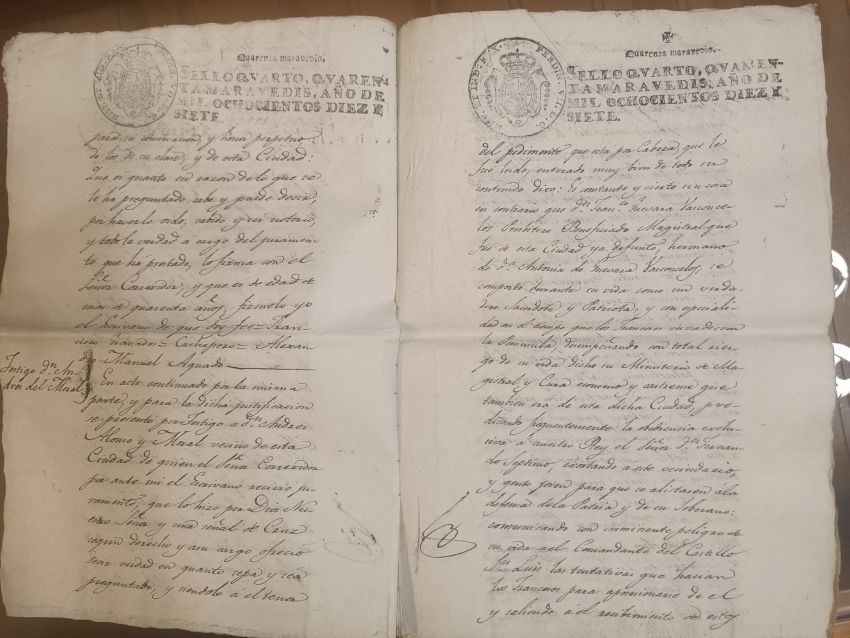 Quarenta maravedis.
SELLO QVARTO, QVAREN-
TA MARAVEDIS, AÑO DE
MIL OCHOCIENTOS DIEZ Y
SIETE.
para su continuacion, y honor perpetuo
de los de su clase, y de esta Ciudad:
Que es quanto en razon de lo que se
le ha preguntado, sabe y puede decir,
por haverlo oido, savido y ser notorio,
y todo la verdad a cargo del juramen-
to que ha prestado, lo firma con el
Señor Corregidor, y que es de edad de
mas de quarenta años, firmelo yo
el Escrivano de que doy fee = Fran-
cisco = Alexan-
dro Manuel Aguado
Testigo dn. An-
dres del Moral
En acto continuado por la misma
parte, y para la dicha justificacion
se presentó por Testigo a dn. Andres
Alonso y Moral vecino de esta
Ciudad de quien el Señor Corregidor
por ante mi el Escrivano recivio ju-
ramento, que lo hizo por Dios Nu-
estro Señor y una señal de Cruz
segun derecho y a su cargo ofrecio
decir verdad en quanto sepa y sea
preguntado, y siendolo a el tenor
Quarenta maravedis.
SELLO QVARTO, QVAREN-
TA MARAVEDIS, AÑO DE
MIL OCHOCIENTOS DIEZ Y
SIETE.
del pedimento que esta por Cabeza, que le
fue leido, enterado muy bien de todo su
contenido dixo: Es constante y cierto sin cosa
en contrario que dn. Franco. Guevara Vasconce-
los Presbitero Beneficiado Magistral que
fue de esta Ciudad ya difunto, hermano
de da. Antonia de Guevara Vasconcelos, se
comportó durante su vida como un verda-
dero Sacerdote y Patriota, y con especiali-
dad en el tiempo que los Franceses invadieron
la Peninsula, desempeñando con total ries-
go de su vida dicho su Ministerio de Ma-
gistral y Cura economo y castrense que
tambien era de esta dicha Ciudad, pre-
dicando frequentemente la obediencia exclu-
siva a nuestro Rey el Señor dn. Fernan-
do Septimo, exortando a este vecindario,
y gente joven para que se alistasen a la
defensa de la Patria y de su Soberano:
comunicando con imminente peligro de
su vida a el Comandante del Castillo
Sn. Luis las tentativas que hacian
los Franceses para aposesionarse de el
y saliendo a el recibimiento de estos